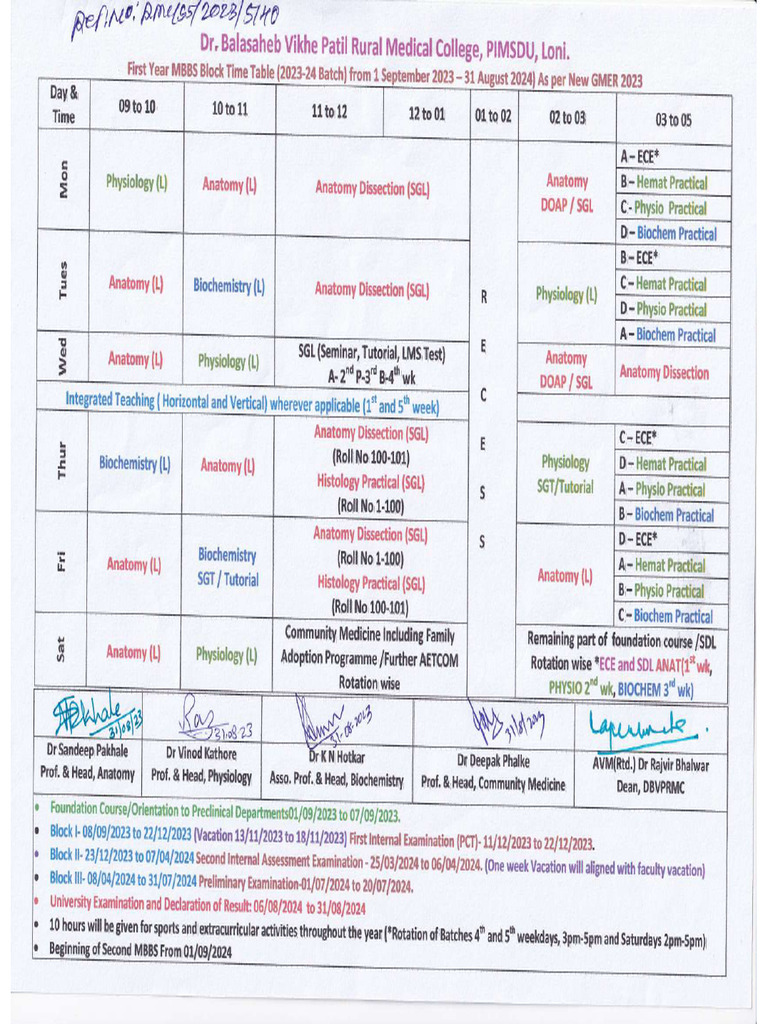 Ref.No: RMC/SS/2023/5140
Dr. Balasaheb Vikhe Patil Rural Medical College, PIMSDU, Loni.
First Year MBBS Block Time Table (2023-24 Batch) from 1 September 2023 – 31 August 2024) As per New GMER 2023
Day & Time 09 to 10 10 to 11 11 to 12 12 to 01 01 to 02 02 to 03 03 to 05
RECESS
Mon
Physiology (L)
Anatomy (L)
Anatomy Dissection (SGL)
Anatomy
DOAP / SGL
A – ECE*
B – Hemat Practical
C - Physio Practical
D – Biochem Practical
Tues
Anatomy (L)
Biochemistry (L)
Anatomy Dissection (SGL)
Physiology (L)
B – ECE*
C – Hemat Practical
D – Physio Practical
A – Biochem Practical
Wed
Anatomy (L)
Physiology (L)
SGL (Seminar, Tutorial, LMS Test)
A- 2nd P-3rd B-4th wk
Anatomy
DOAP / SGL
Anatomy Dissection
Integrated Teaching ( Horizontal and Vertical) wherever applicable (1st and 5th week)
Thur
Biochemistry (L)
Anatomy (L)
Anatomy Dissection (SGL)
(Roll No 100-101)
Histology Practical (SGL)
(Roll No 1-100)
Physiology
SGT/Tutorial
C – ECE*
D – Hemat Practical
A – Physio Practical
B – Biochem Practical
Fri
Anatomy (L)
Biochemistry
SGT / Tutorial
Anatomy Dissection (SGL)
(Roll No 1-100)
Histology Practical (SGL)
(Roll No 100-101)
Anatomy (L)
D – ECE*
A – Hemat Practical
B – Physio Practical
C – Biochem Practical
Sat
Anatomy (L)
Physiology (L)
Community Medicine Including Family
Adoption Programme /Further AETCOM
Rotation wise
Remaining part of foundation course /SDL
Rotation wise *ECE and SDL ANAT(1st wk,
PHYSIO 2nd wk, BIOCHEM 3rd wk)
31/08/23
Dr Sandeep Pakhale
Prof. & Head, Anatomy
31.08.23
Dr Vinod Kathore
Prof. & Head, Physiology
31-08-2023
Dr K N Hotkar
Asso. Prof. & Head, Biochemistry
31/8/2023
Dr Deepak Phalke
Prof. & Head, Community Medicine
AVM(Rtd.) Dr Rajvir Bhalwar
Dean, DBVPRMC
• Foundation Course/Orientation to Preclinical Departments01/09/2023 to 07/09/2023.
• Block I- 08/09/2023 to 22/12/2023 (Vacation 13/11/2023 to 18/11/2023) First Internal Examination (PCT)- 11/12/2023 to 22/12/2023.
• Block II- 23/12/2023 to 07/04/2024 Second Internal Assessment Examination - 25/03/2024 to 06/04/2024. (One week Vacation will aligned with faculty vacation)
• Block III- 08/04/2024 to 31/07/2024 Preliminary Examination-01/07/2024 to 20/07/2024.
• University Examination and Declaration of Result: 06/08/2024 to 31/08/2024
• 10 hours will be given for sports and extracurricular activities throughout the year (*Rotation of Batches 4th and 5th weekdays, 3pm-5pm and Saturdays 2pm-5pm)
• Beginning of Second MBBS From 01/09/2024